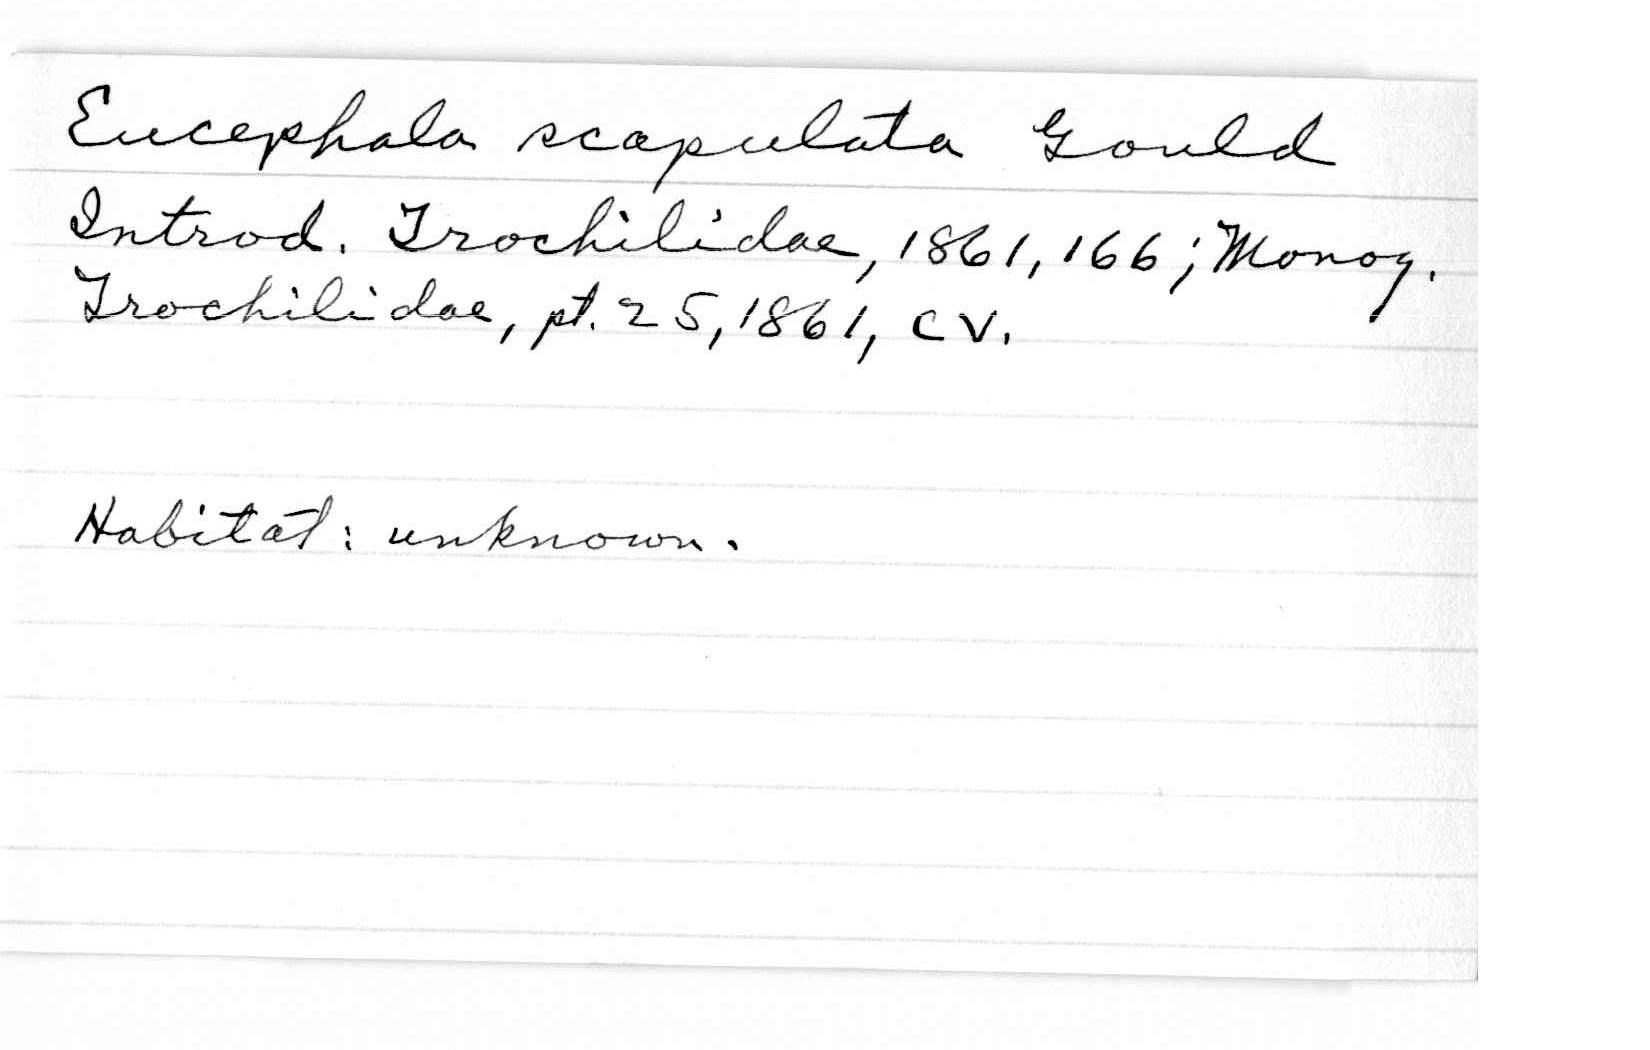 Eucephala scapulata Gould
Introd. Trochilidae, 1861, 166; Monog.
Trochilidae, pt. 25, 1861, CV.
Habitat: unknown.